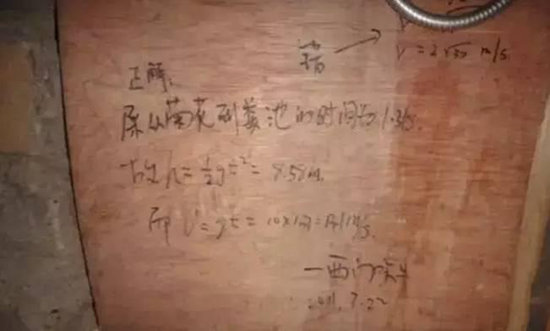 v = 2√30 m/s.
正解:
屎从菊花到粪池的时间为1.31s.
故h=½gt²=8.58m.
而 v=gt=10×1.31=13.1m/s.
一西门
2011.7.22